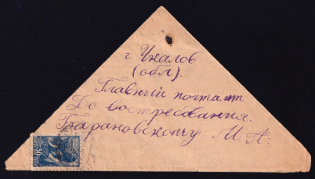 г Чкалов
(обл).
Главный почтамт
До востребования.
Барановскому М. А.